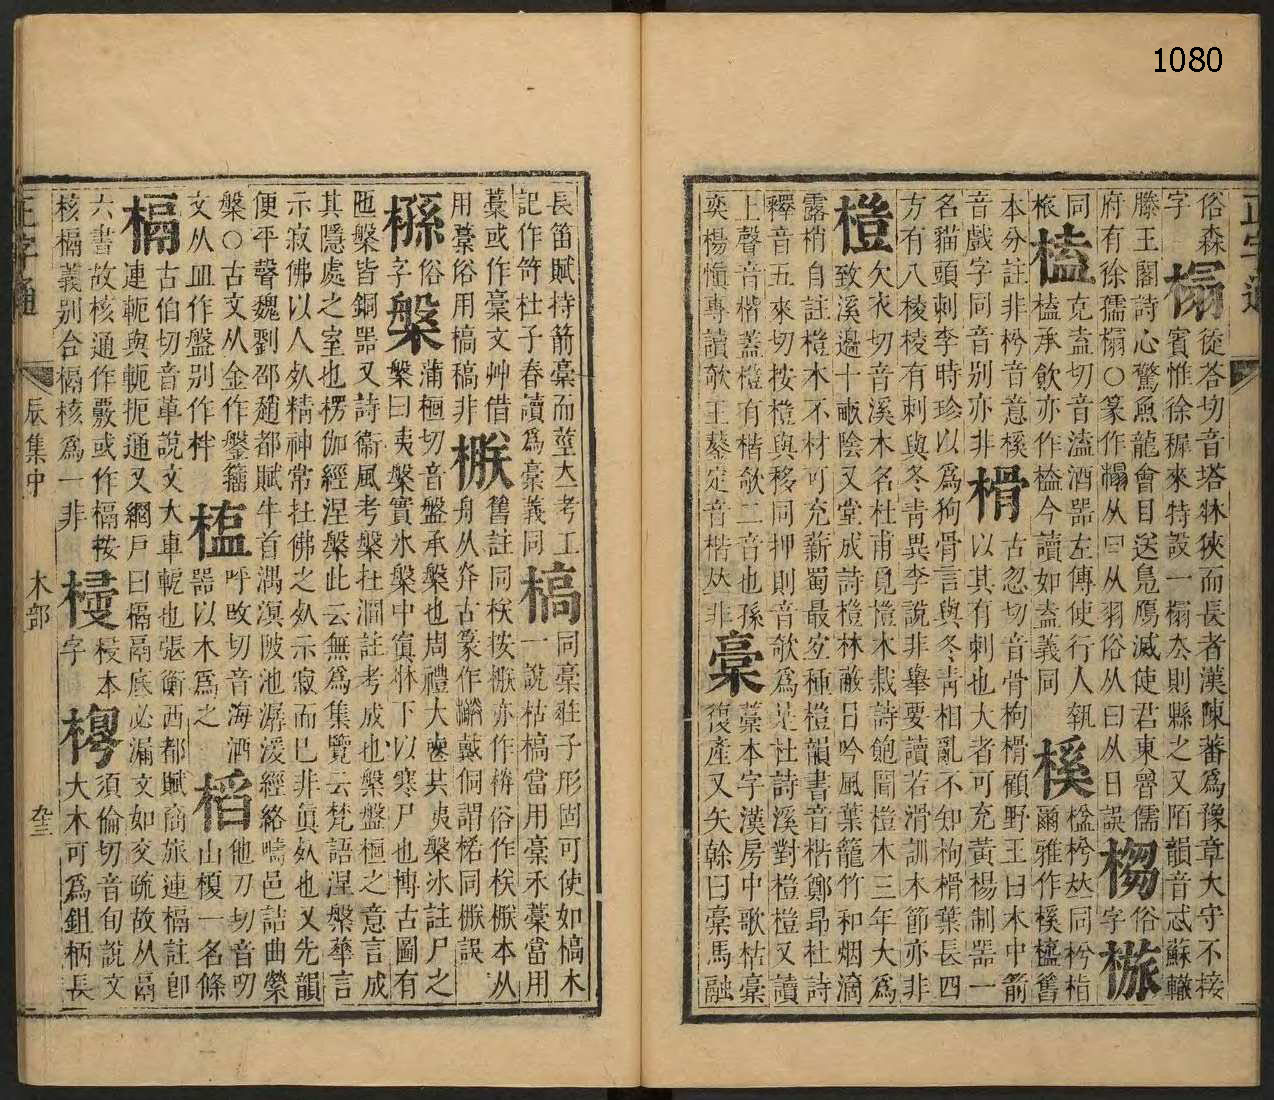 1080
正字通
俗森榻從荅切音塔牀狹而長者漢陳蕃爲豫章大守不接
字賓惟徐穉來特設一榻去則縣之又陌韻音忒蘇轍
滕王閣詩心驚魚龍會目送鳧鴈滅使君東魯儒俗
府有徐孺榻○篆作榻从曰从羽俗从曰从日誤字
同榼克盍切音溘酒器左傳使行人執榽楹枍𠀤同枍栺
榼承飲亦作榼今讀如盍義同爾雅作榽橀舊
本分註非枍音意榽榾古忽切音骨枸榾顧野王曰木中箭
音戲字同音别亦非以其有刺也大者可充黃楊制器一
名貓頭刺李時珍以爲狗骨言與冬靑相亂不知枸榾葉長四
方有八棱棱有刺與冬靑異李說非舉要讀若滑訓木節亦非
榿欠衣切音溪木名杜甫覓榿木栽詩飽聞榿木三年大爲
致溪邊十畝陰又堂成詩榿林蔽日吟風葉籠竹和烟滴
露梢自註榿木不材可充薪蜀最冝種榿韻書音楷鄭昂杜詩
釋音五來切按榿與移同押則音欹爲是杜詩溪對榿榿又讀
上聲音楷蓋榿有楷欹二音也孫槀槀本字漢房中歌枯槀
奕楊愼專讀欹王定音楷𠀤非復產又矢榦曰槀馬融
長笛賦持箭槀而莖大考工槁同槀莊子形固可使如槁木
記作笴杜子春讀爲槀義同一說枯槁當用槀禾藁當用
藁或作稾文艸借㮵舊註同栚按㮵亦作俗作栚㮵本从
用藁俗用槁稿非舟从灷古篆作戴侗謂楉同㮵誤
槂俗槃蒲桓切音盤承槃也周禮大喪共夷槃冰註尸之
字槃曰夷槃實氷槃中窴牀下以寒尸也博古圖有
匜槃皆銅器又詩衞風考槃在澗註考成也槃盤桓之意言成
其隱處之室也楞伽經涅槃此云無爲集覽云梵語涅槃華言
示寂佛以人𣦸精神常在佛之𣦸示寂而已非眞𣦸也又先韻
便平聲魏劉邵趙都賦牛首潙溟陂池潺湲經絡疇邑詰曲縈
槃○古文从金作鎜籀榏呼改切音海酒槄他刀切音叨
文从皿作盤别作柈器以木爲之山榎一名條
槅古伯切音革說文大車軶也張衡西都賦商旅連槅註卽
連軶與軶扼通又網戸曰槅鬲底必漏文如交疏故从鬲
六書故核通作覈或作槅按本須倫切音旬說文
核槅義别合槅核爲一非字大木可爲鉏柄長
正字通 辰集中 木部